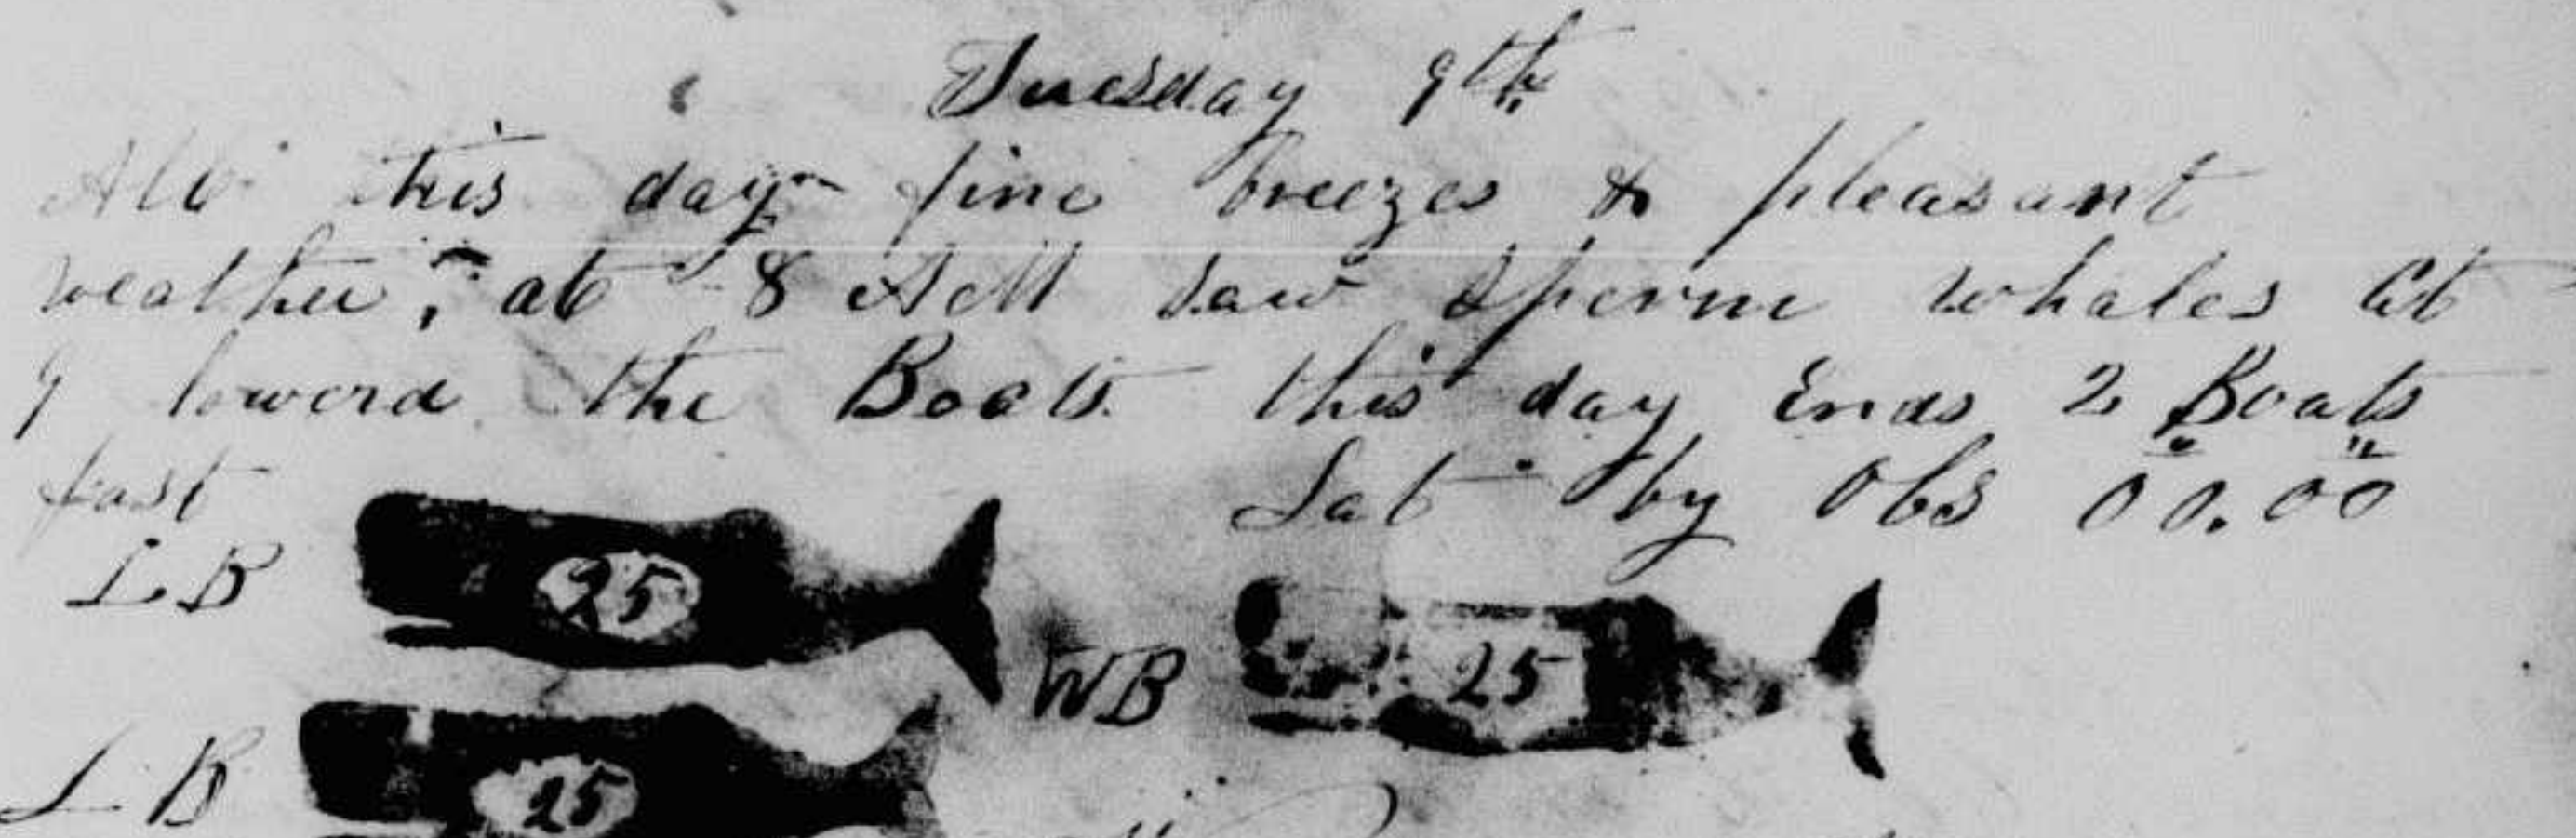 Tuesday 9th
All this day fine breezes & pleasant
weather, at 8 AM saw Sperm whales At
9 lowerd the Boats this day Ends 2 Boats
fast Lat by Obs 00.00
LB 25 WB 25
LB 25